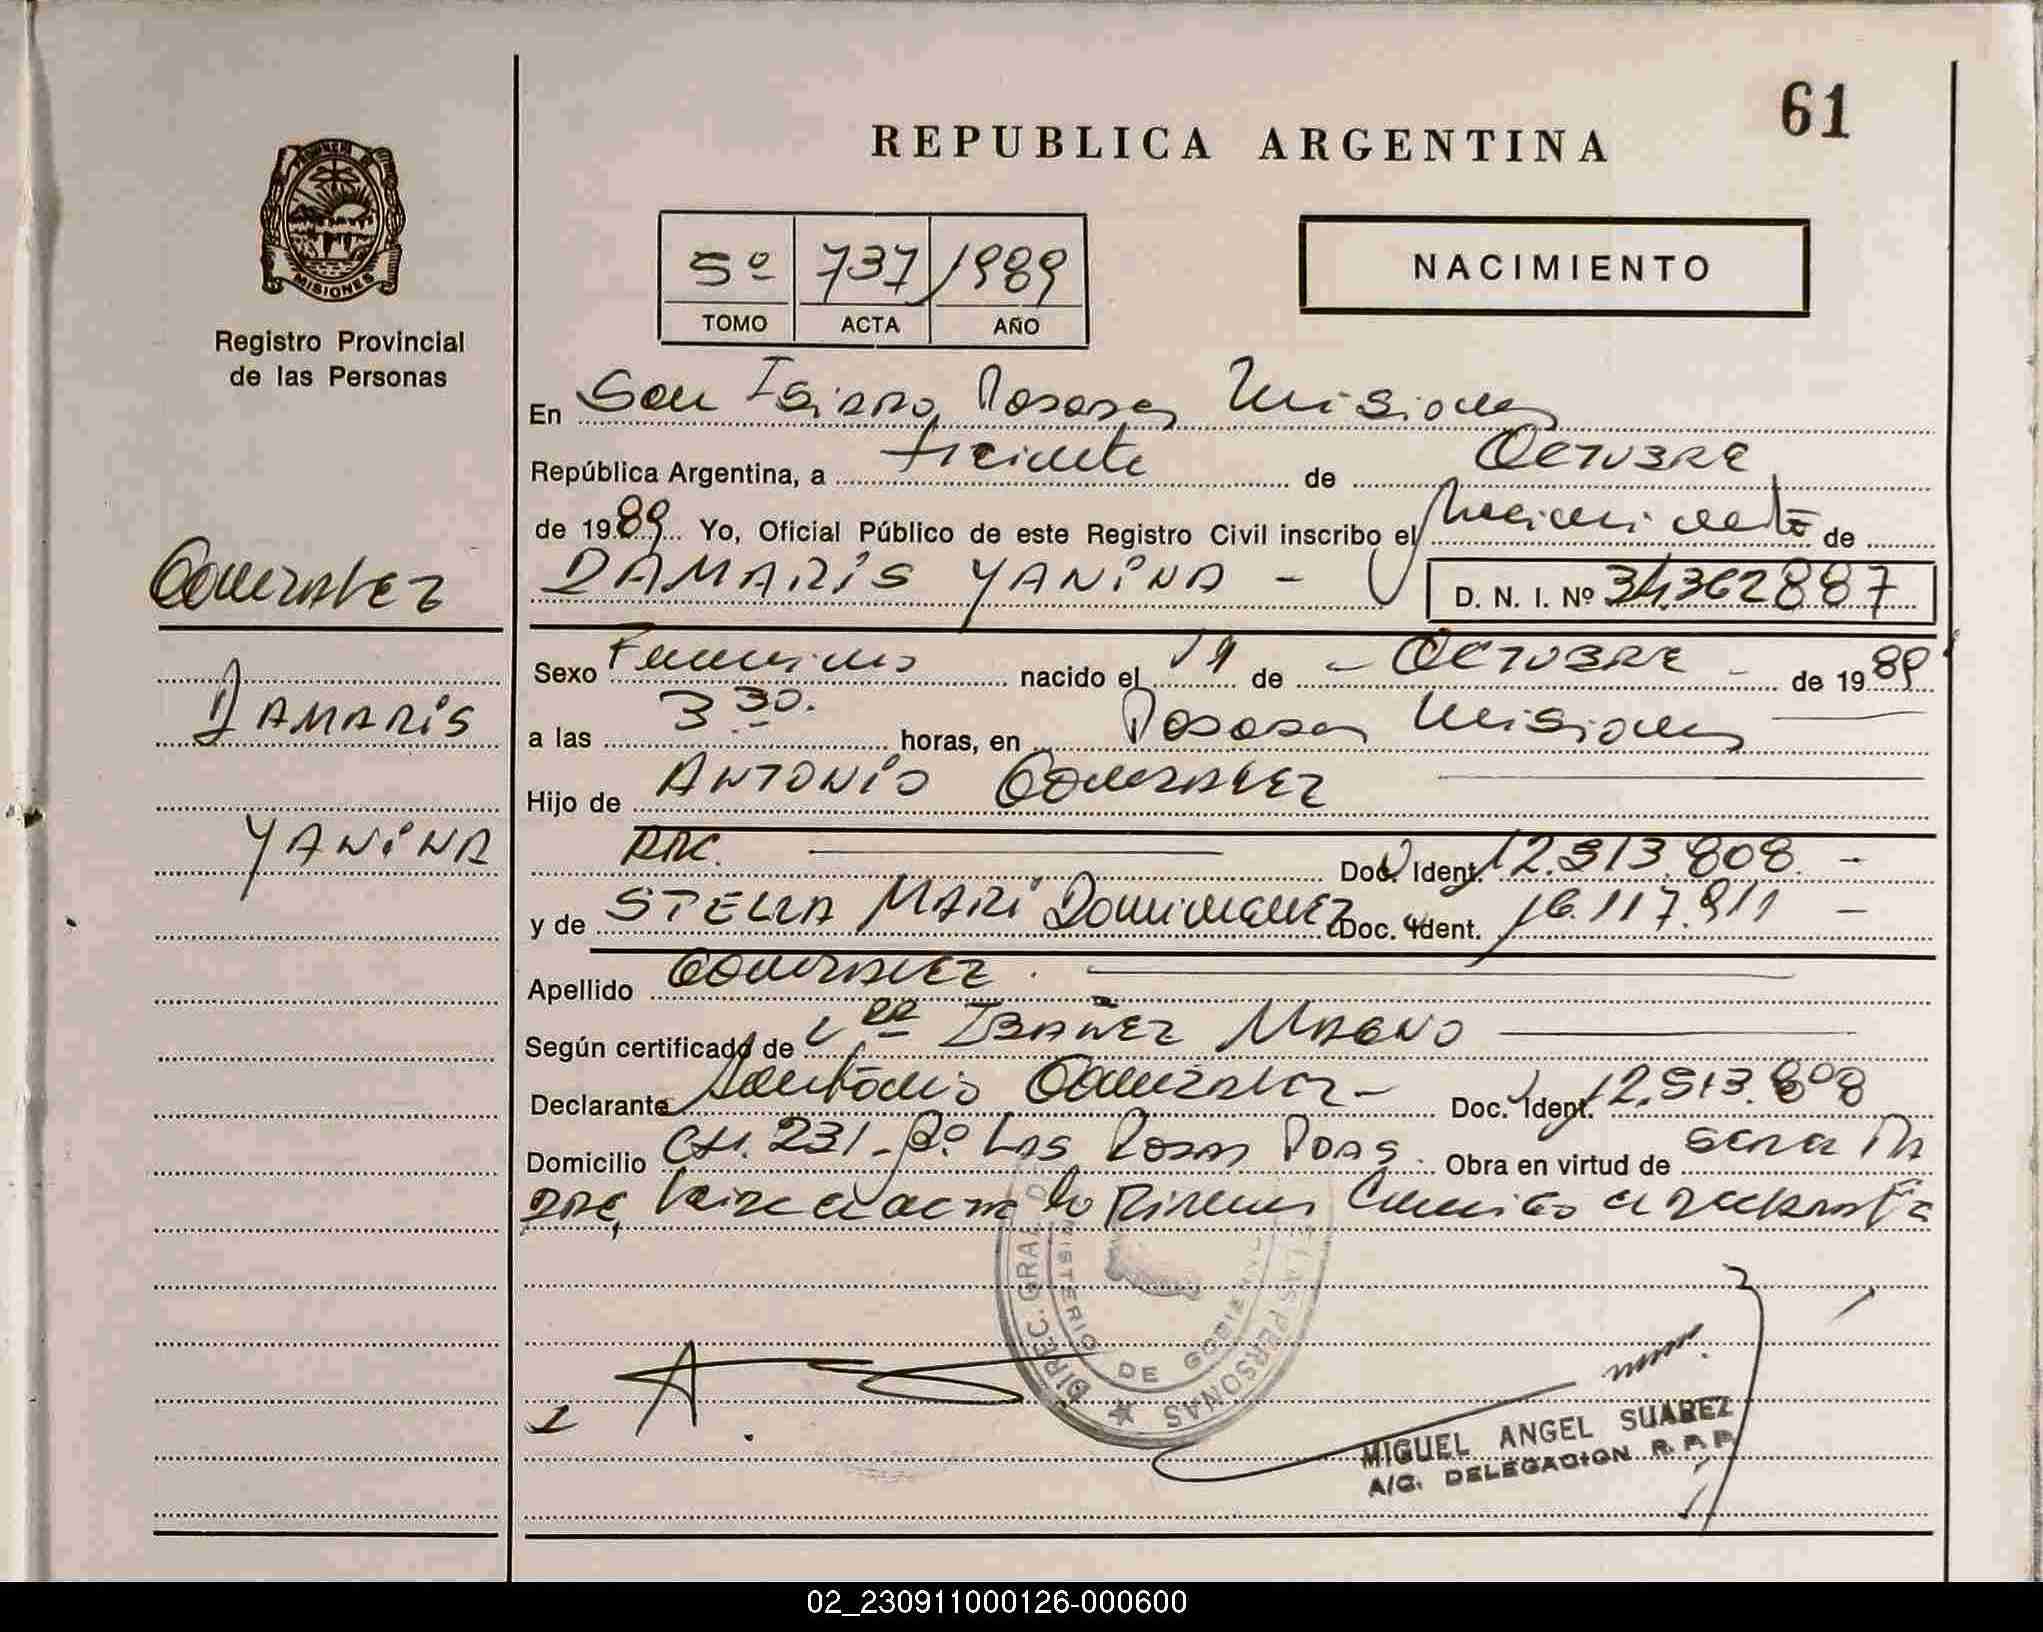 61
REPUBLICA ARGENTINA
MISIONES
Registro Provincial
de las Personas
5º 737/1989
TOMO ACTA AÑO
NACIMIENTO
En San Isidro, Posadas, Misiones
República Argentina, a treinta de Octubre
de 1989. Yo, Oficial Público de este Registro Civil inscribo el Nacimiento de
DAMARIS YANINA - D. N. I. Nº 34.362887
Gonzalez
DAMARIS
YANINA
Sexo Femenino nacido el 19 de - Octubre - de 1989
a las 3 30. horas, en Posadas Misiones
Hijo de Antonio Gonzalez
Doc. Ident. 12.513.808. -
y de STELLA MARI Dominguez Doc. Ident. 16.117.911 -
Apellido Gonzalez.
Según certificado de Ibañez Magno
Declarante Antonio Gonzalez - Doc. Ident. 12.513.808
Domicilio CH. 231 - Bº Las Rosas Pdas. Obra en virtud de ser el
el acta lo Firman Conmigo el declarante
DIREC. GRAL. D LAS PERSONAS
MINISTERIO DE GOBIERNO
MIGUEL ANGEL SUAREZ
A/C. DELEGACION R. P. P.
02_230911000126-000600